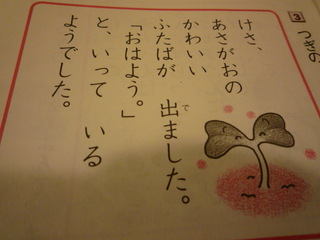 3 つぎの
けさ、
あさがおの
かわいい
ふたばが 出ました。
で
「おはよう。」
と、いって いる
ようでした。